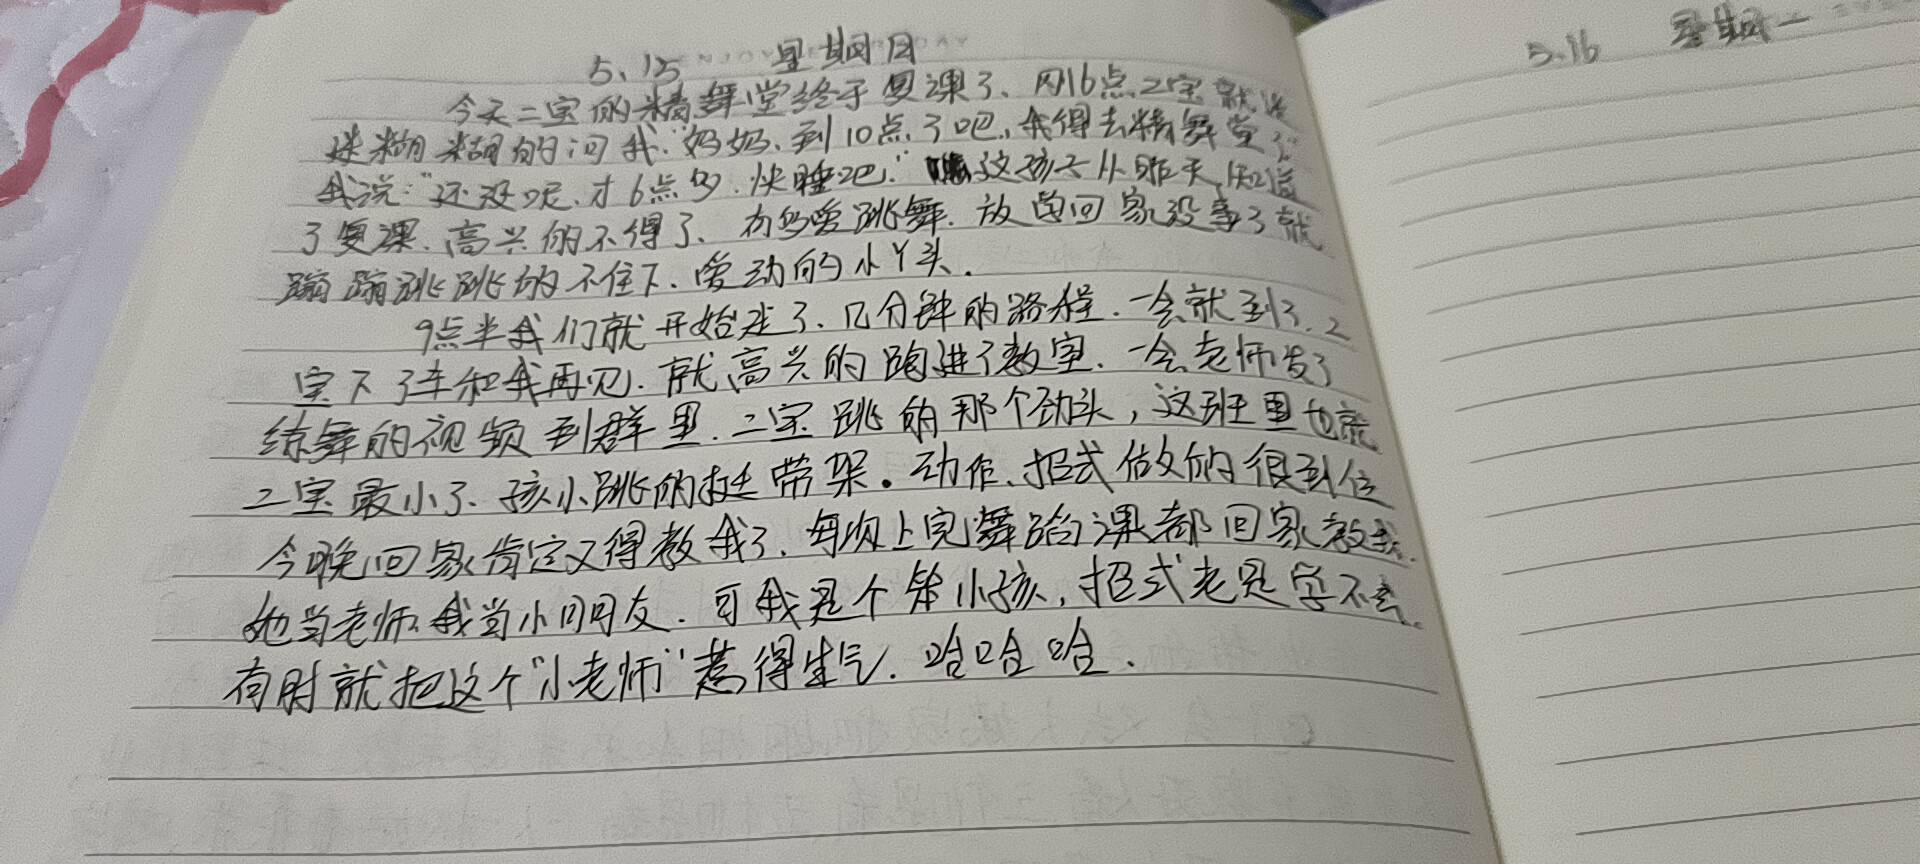 5.15 星期日
今天二宝的精舞堂终于复课了、刚6点二宝就迷
迷糊糊的问我:"妈妈、到10点了吧,我得去精舞堂了"
我说:"还没呢、才6点多.快睡吧."这孩子从昨天知道
了复课.高兴的不得了、有多爱跳舞.放学回家没事了就
蹦蹦跳跳的不住下.爱动的小丫头.
9点半我们就开始走了、几分钟的路程.一会就到了.二
宝下了车和我再见.就高兴的跑进了教室.一会老师发了
练舞的视频到群里.二宝跳的那个劲头,这班里也就
二宝最小了、孩小跳的挺带架。动作、招式做的很到位
今晚回家肯定又得教我了、每次上完舞蹈课都回家教我.
她当老师.我当小朋友.可我是个笨小孩,招式老是学不会.
有时就把这个"小老师"惹得生气.哈哈哈.
5.16 星期一